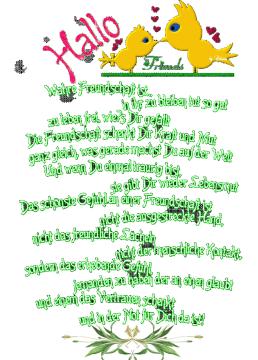 Hallo
Friends
Wahre Freundschaft ist,
'n Ihr zu bleiben, tut so gut
zu leben frei, wie's Dir gefällt
Die Freundschaft schenkt Dir Kraft und Mut
ganz gleich, was gerade machst Du auf der Welt
Und wenn Du einmal traurig bist,
sie gibt Dir wieder Lebensmut
Das schönste Gefühl an einer Freundschaft ist
nicht die ausgestreckte Hand,
nicht das freundliche Lächeln
nicht der menschliche Kontakt,
sondern das erhebende Gefühl
jemanden zu haben der an einen glaubt
und einem das Vertrauen schenkt
und in der Not für Dich da ist!